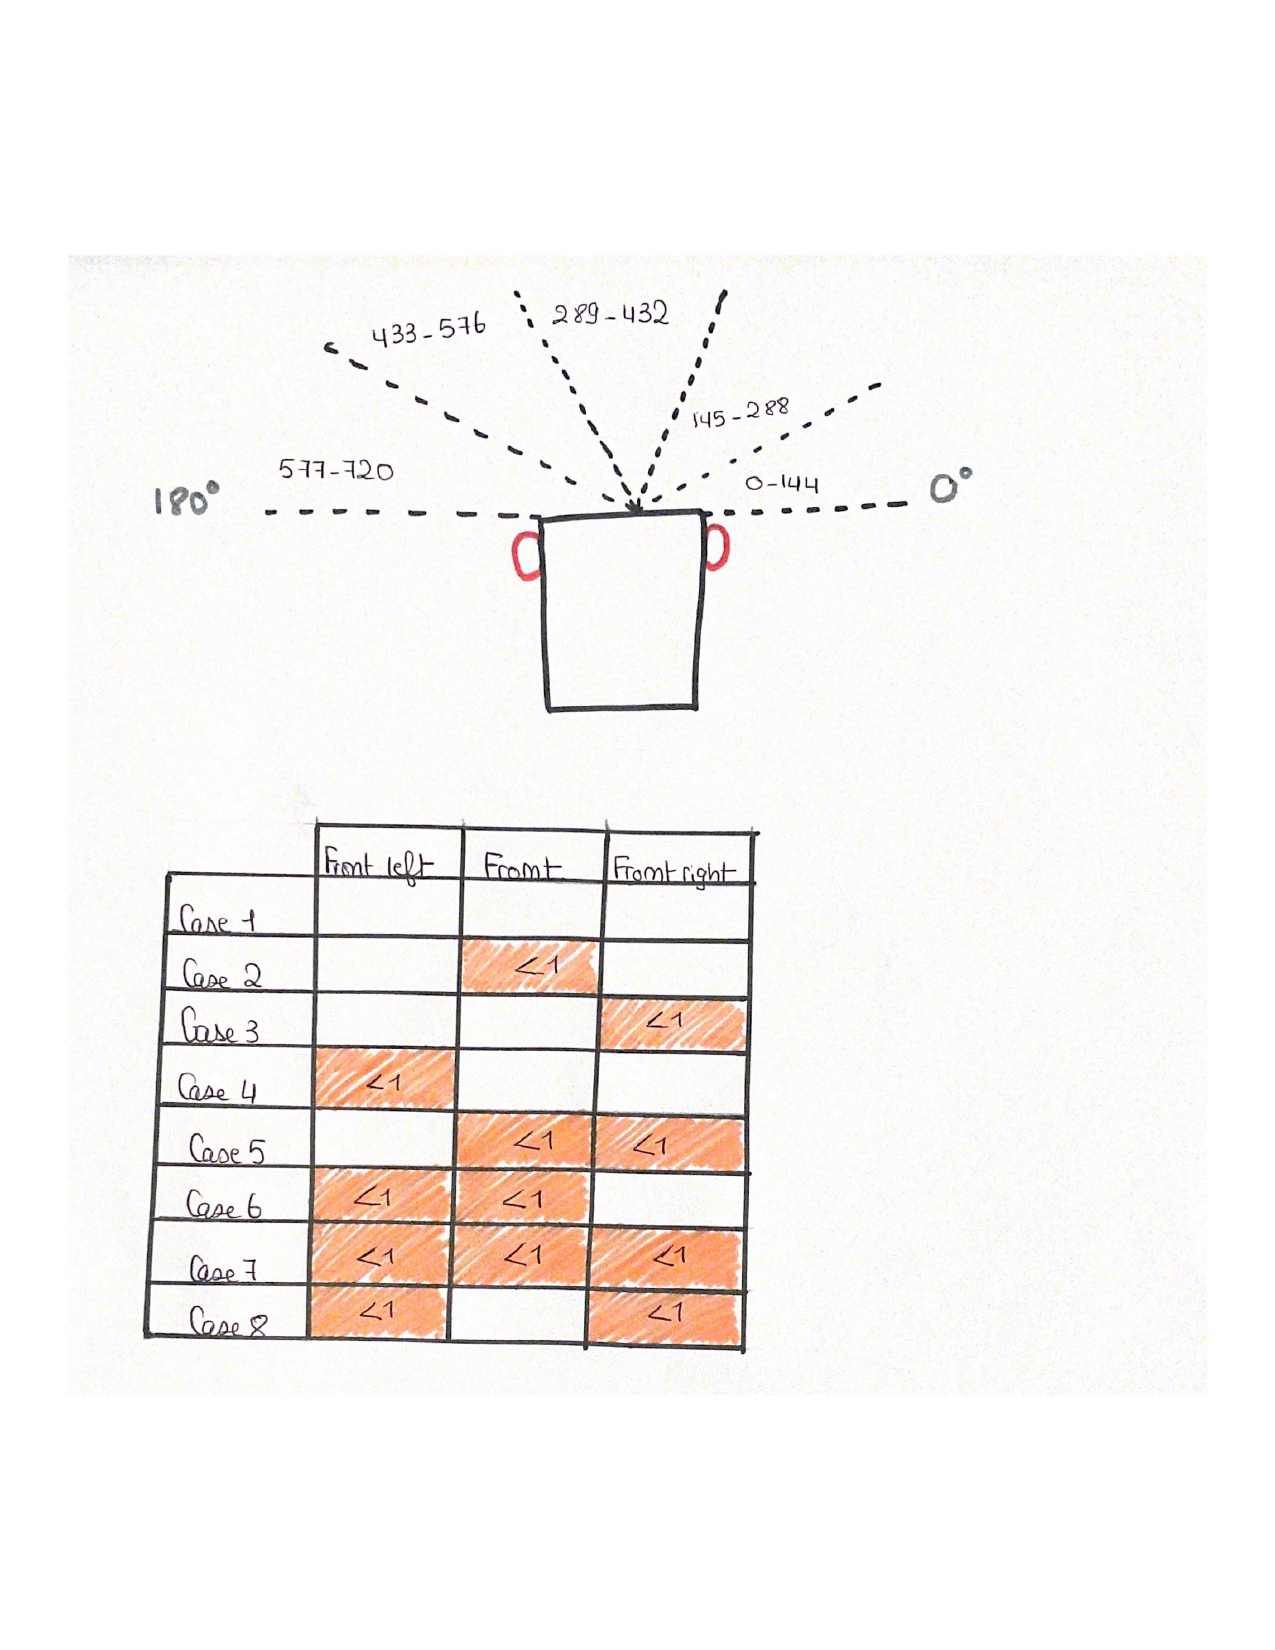 433-576
289-432
145-288
577-720
0-144
180°
0°
Front left Front Front right
Case 1
Case 2 <1
Case 3 <1
Case 4 <1
Case 5 <1 <1
Case 6 <1 <1
Case 7 <1 <1 <1
Case 8 <1 <1